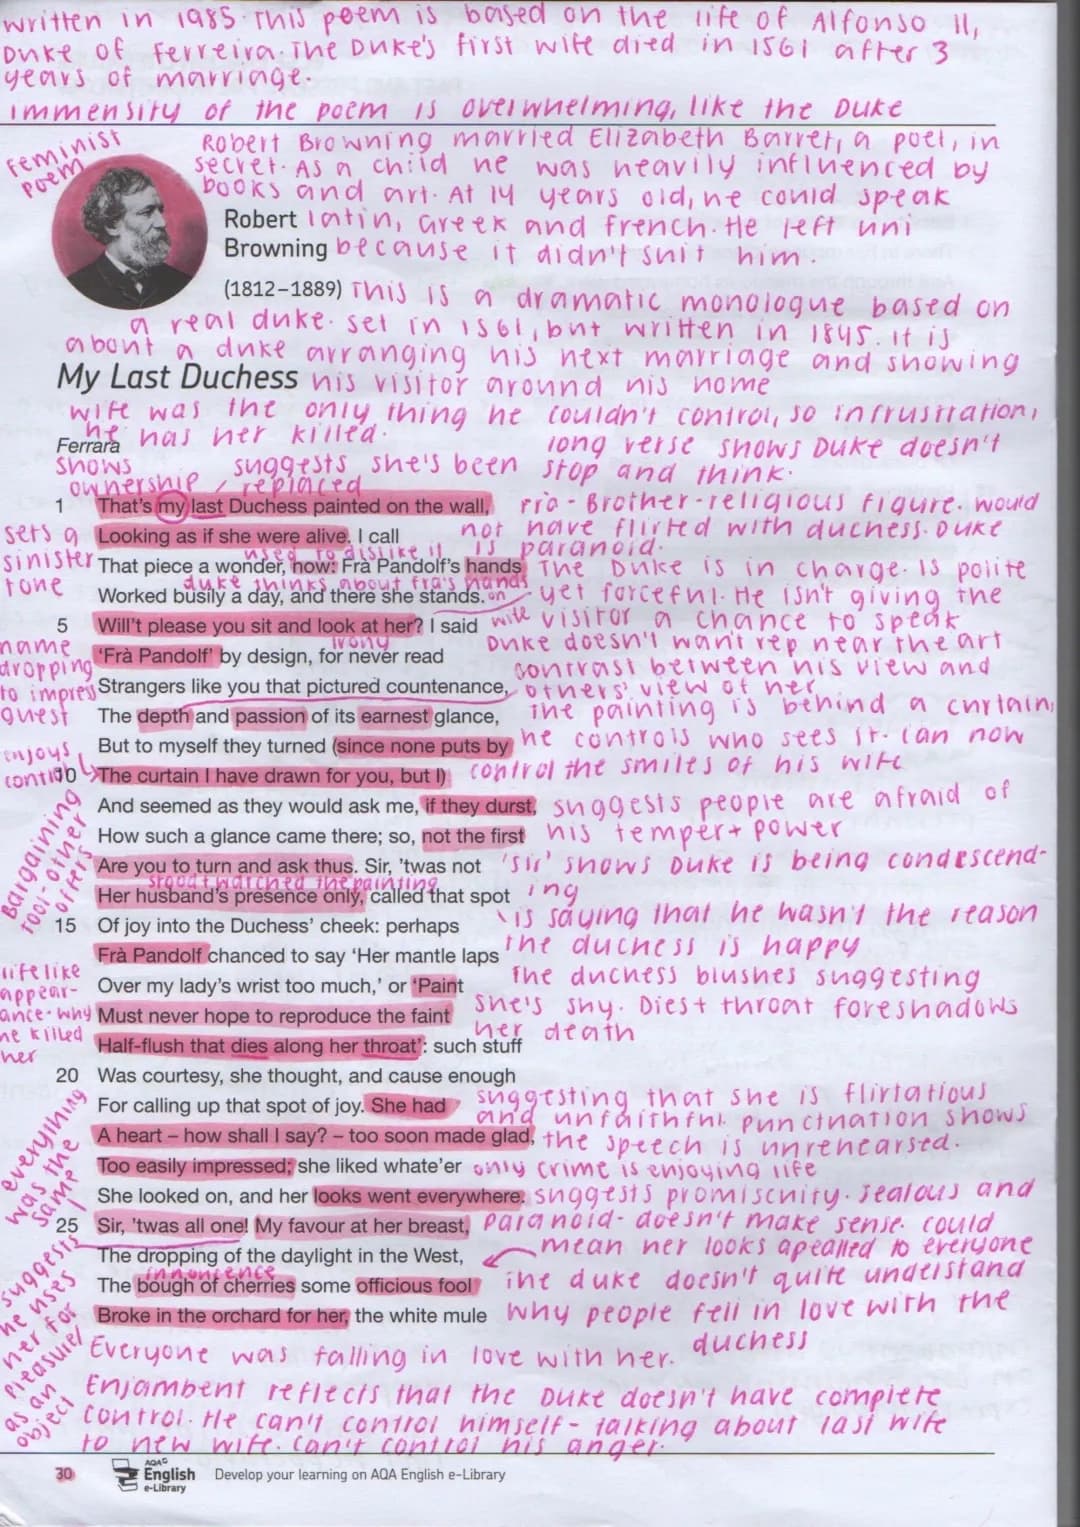 written in 1985. This poem is based on the life of Alfonso II,
Duke of Ferreira. The Duke's first wife died in 1561 after 3
years of marriage.
immensity of the poem is overwhelming, like the Duke
feminist
poem
Robert Browning married Elizabeth Barret, a poet, in
secret. As a child he was heavily influenced by
books and art. At 14 years old, he could speak
Robert latin, Greek and french. He left uni
Browning because it didn't suit him.
(1812–1889) This is a dramatic monologue based on
a real duke. set in 1561, but written in 1845. it is
about a duke arranging his next marriage and showing
My Last Duchess his visitor around his home
wife was the only thing he couldn't control, so in frustration,
he has her killed.
Ferrara
long verse shows Duke doesn't
stop and think.
shows
ownership
suggests she's been
replaced
1 That's my last Duchess painted on the wall,
fra - Brother - religious figure. would
sets a
sinister
tone
Looking as if she were alive. I call
not have flirted with duchess. Duke
is paranoid.
used to dislike it
That piece a wonder, now: Frà Pandolf's hands
The Duke is in charge. Is polite
duke thinks about fra's hands
on
wife
Worked busily a day, and there she stands.
yet forceful. He isn't giving the
5 Will't please you sit and look at her? I said
visitor a chance to speak
name
dropping
to impress
guest
irony
'Frà Pandolf' by design, for never read
Duke doesn't want rep near the art
contrast between his view and
Strangers like you that pictured countenance,
others' view of her
The depth and passion of its earnest glance,
The painting is behind a curtain,
But to myself they turned (since none puts by
he controls who sees it. Can now
enjoys
control
10 The curtain I have drawn for you, but I)
control the smiles of his wife
And seemed as they would ask me, if they durst,
suggests people are afraid of
How such a glance came there; so, not the first
his temper + power
Bargaining
tool - other
offers
Are you to turn and ask thus. Sir, 'twas not
'Sir' shows Duke is being condescend-
ing
stood + watched the painting
Her husband's presence only, called that spot
is saying that he wasn't the reason
15 Of joy into the Duchess' cheek: perhaps
the duchess is happy
Frà Pandolf chanced to say 'Her mantle laps
The duchess blushes suggesting
lifelike
appear-
ance - why
he killed
her
Over my lady's wrist too much,' or 'Paint
she's shy. Dies + throat foreshadows
Must never hope to reproduce the faint
her death
Half-flush that dies along her throat': such stuff
20 Was courtesy, she thought, and cause enough
everything
was the
same
For calling up that spot of joy. She had
suggesting that she is flirtatious
and unfaithful. Punctuation shows
A heart – how shall I say? – too soon made glad,
the speech is unrehearsed.
Too easily impressed; she liked whate'er
only crime is enjoying life
She looked on, and her looks went everywhere.
suggests promiscuity. Jealous and
25 Sir, 'twas all one! My favour at her breast,
paranoid - doesn't make sense. could
The dropping of the daylight in the West,
mean her looks apealled to everyone
innonence
The bough of cherries some officious fool
The duke doesn't quite understand
Broke in the orchard for her, the white mule
why people fell in love with the
duchess
suggests
he uses
her for
pleasure/
as an
object
Everyone was falling in love with her.
Enjambent reflects that the Duke doesn't have complete
control. He can't control himself - talking about last wife
to new wife. Can't control his anger.
30
AQA
English
e-Library
Develop your learning on AQA English e-Library